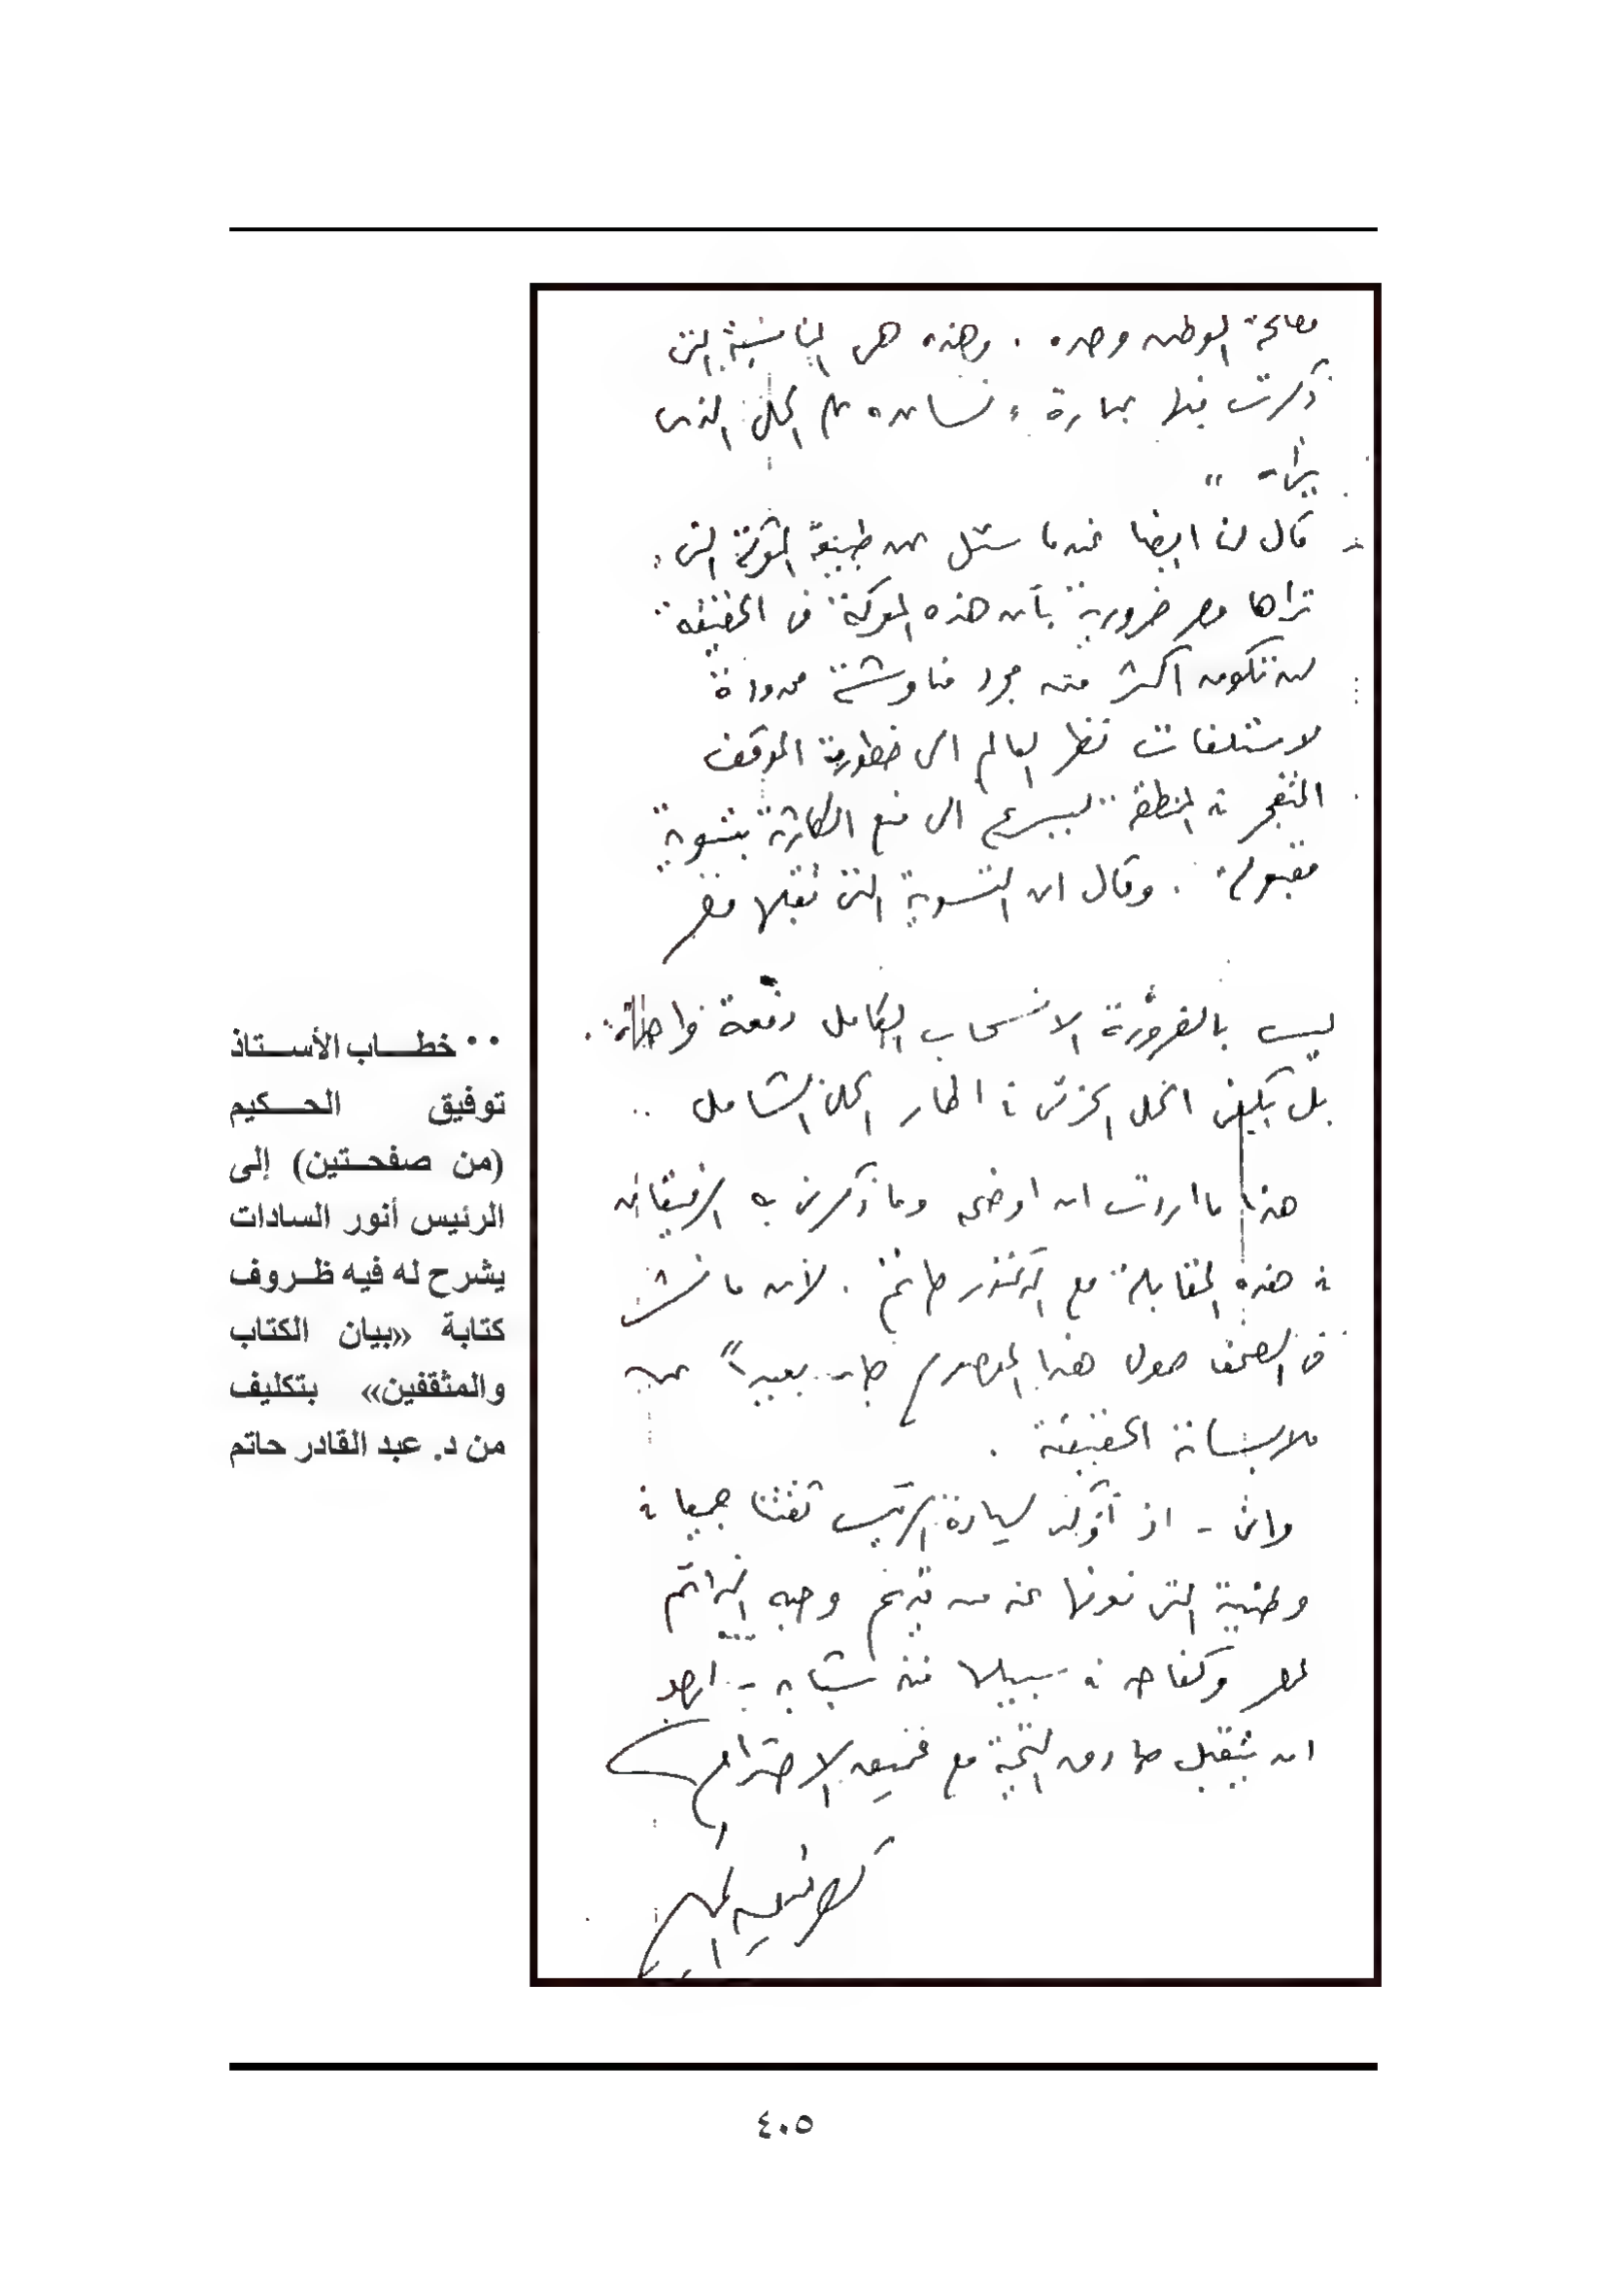 مصلحة الوطن وحده . وهذه هى المناسبة التى
ذكرت فيها عبارة نسانده على الحل الذى
يراه "
- قال لنا ايضا عندما سئل عن طبيعة المعركة التى
تراها مصر ضرورية بأن هذه المعركة فى الحقيقة
لن تكون اكثر من مجرد مناوشة محدودة
لاستلفات نظر العالم الى خطورة الموقف
المتفجر فى المنطقة ليسرع الى منع الكارثة بتسوية
مقبولة . وقال ان التسوية التى تقبلها مصر
ليست بالضرورة الانسحاب الكامل دفعة واحدة .
بل يكفى الحل الجزئى فى اطار الحل الشامل ..
هذا ما اردت ان اوضحه وما ذكرنى به الرفيقان
فى هذه المقابلة مع الدكتور حاتم . لأن ما نشر
فى الصحف حول هذا الموضوع جاء بعيداً عن
ملابساته الحقيقية .
وانى - اذ أؤكد لسيادة الرئيس ثقتنا جميعا فى
وطنيته التى نعرفها عنه من قديم وحبه الدائم
لمصر وكفاحه فى سبيلها منذ شبابه - ارجو
ان تتقبل صادق التحية مع عميق الاحترام
توفيق الحكيم
•• خطاب الأستاذ
توفيق الحكيم
(من صفحتين) إلى
الرئيس أنور السادات
يشرح له فيه ظروف
كتابة «بيان الكتاب
والمثقفين» بتكليف
من د. عبد القادر حاتم
٤٠٥